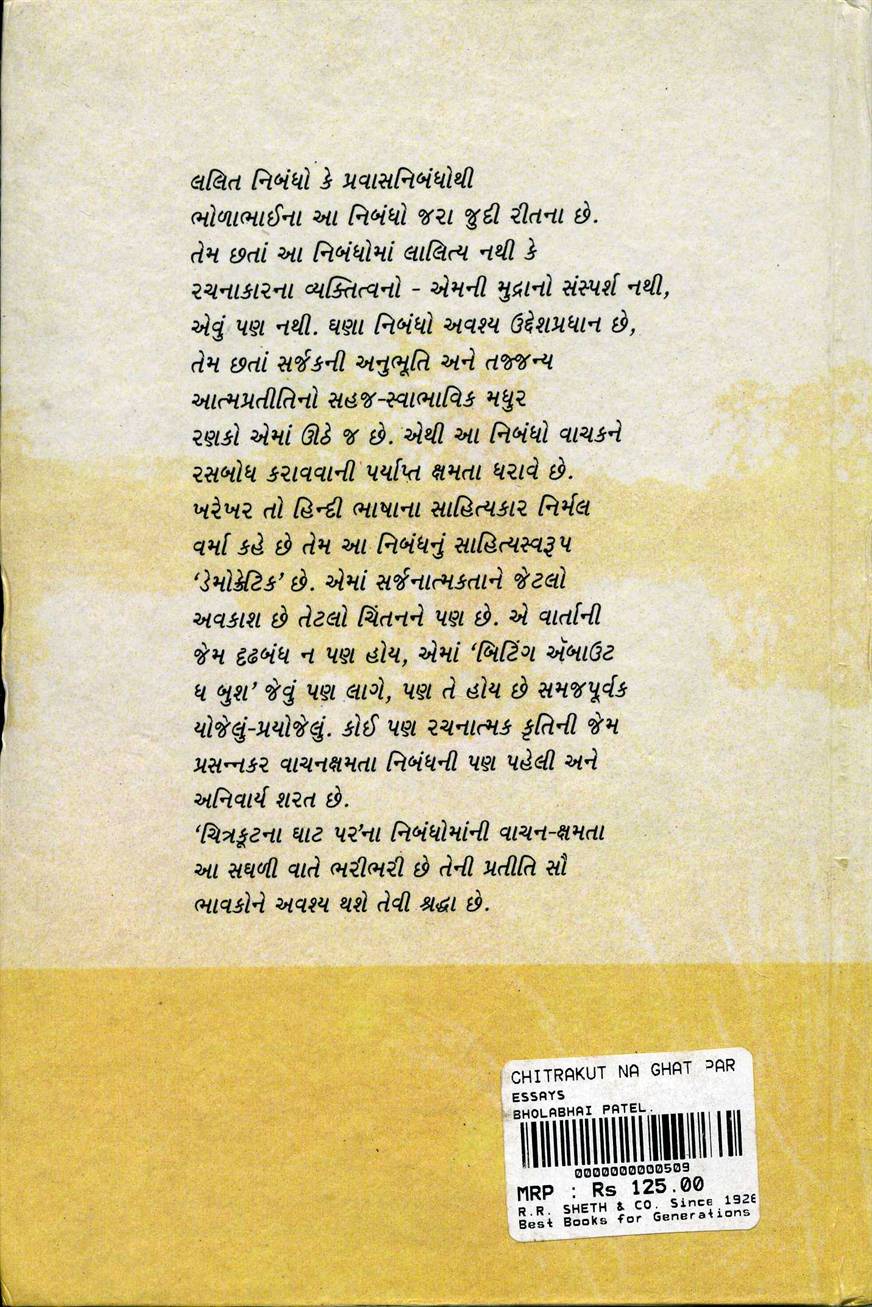 લલિત નિબંધો કે પ્રવાસનિબંધોથી
ભોળાભાઈના આ નિબંધો જરા જુદી રીતના છે.
તેમ છતાં આ નિબંધોમાં લાલિત્ય નથી કે
રચનાકારના વ્યક્તિત્વનો - એમની મુદ્રાનો સંસ્પર્શ નથી,
એવું પણ નથી. ઘણા નિબંધો અવશ્ય ઉદ્દેશપ્રધાન છે,
તેમ છતાં સર્જકની અનુભૂતિ અને તજ્જન્ય
આત્મપ્રતીતિનો સહજ-સ્વાભાવિક મધુર
રણકો એમાં ઊઠે જ છે. એથી આ નિબંધો વાચકને
રસબોધ કરાવવાની પર્યાપ્ત ક્ષમતા ધરાવે છે.
ખરેખર તો હિન્દી ભાષાના સાહિત્યકાર નિર્મલ
વર્મા કહે છે તેમ આ નિબંધનું સાહિત્યસ્વરૂપ
‘ડેમોક્રેટિક’ છે. એમાં સર્જનાત્મકતાને જેટલો
અવકાશ છે તેટલો ચિંતનને પણ છે. એ વાર્તાની
જેમ દૃઢબંધ ન પણ હોય, એમાં ‘બિટિંગ ઍબાઉટ
ધ બુશ’ જેવું પણ લાગે, પણ તે હોય છે સમજપૂર્વક
યોજેલું-પ્રયોજેલું. કોઈ પણ રચનાત્મક કૃતિની જેમ
પ્રસન્નકર વાચનક્ષમતા નિબંધની પણ પહેલી અને
અનિવાર્ય શરત છે.
‘ચિત્રકૂટના ઘાટ પર’ના નિબંધોમાંની વાચન-ક્ષમતા
આ સઘળી વાતે ભરીભરી છે તેની પ્રતીતિ સૌ
ભાવકોને અવશ્ય થશે તેવી શ્રદ્ધા છે.
CHITRAKUT NA GHAT PAR
ESSAYS
BHOLABHAI PATEL.
0000000000509
MRP : Rs 125.00
R.R. SHETH & CO. Since 1926
Best Books for Generations